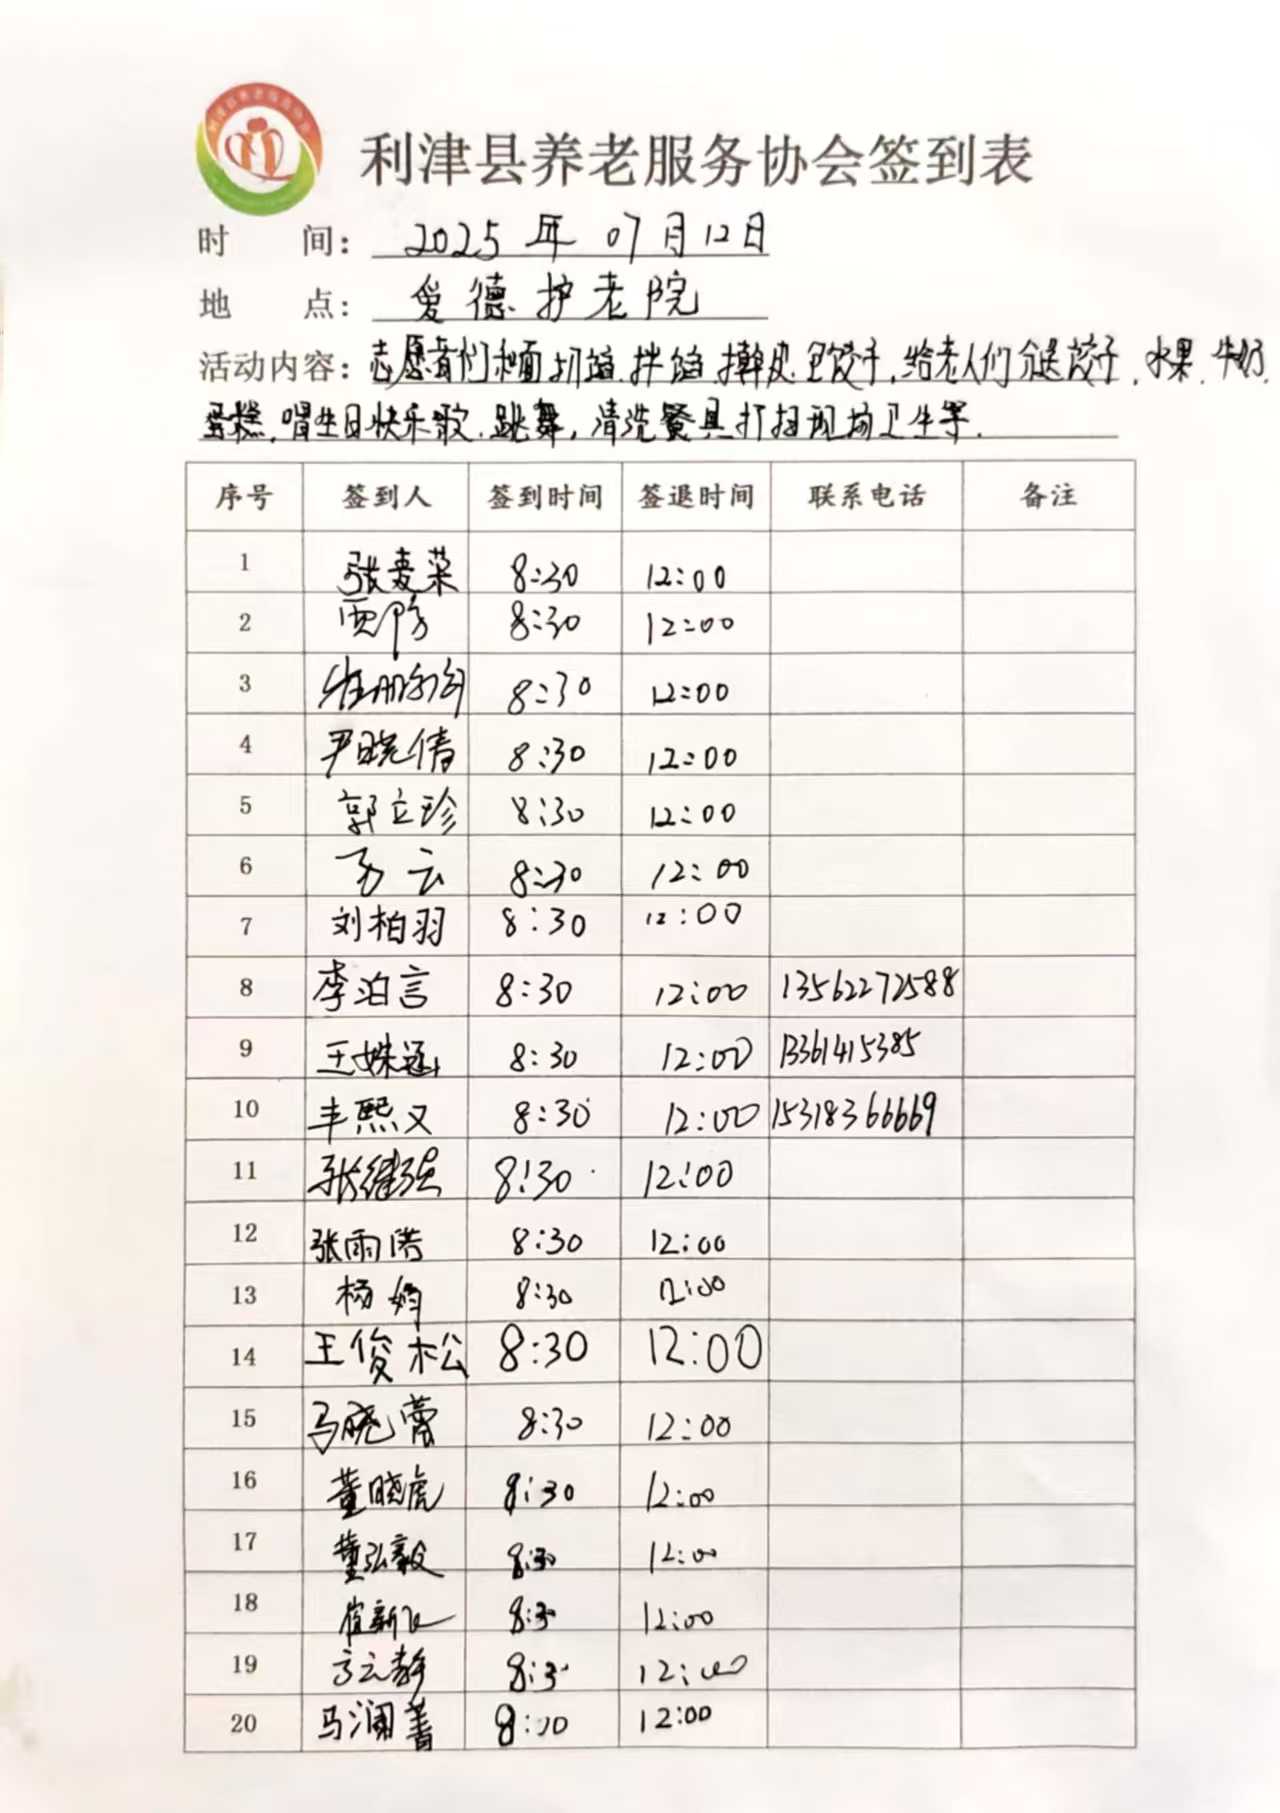 利津县养老服务协会签到表
时 间： 2025年07月12日
地 点： 爱德护老院
活动内容：志愿者们和面.切馅.拌馅.擀皮.包饺子，给老人们分送饺子，水果.牛奶.
蛋糕，唱生日快乐歌.跳舞，清洗餐具打扫现场卫生等.
序号 签到人 签到时间 签退时间 联系电话 备注
1 张麦菜 8:30 12:00
2 贾 8:30 12:00
3 崔 8:30 12:00
4 尹晓倩 8:30 12:00
5 郭立珍 8:30 12:00
6 云 8:30 12:00
7 刘柏羽 8:30 12:00
8 李泊言 8:30 12:00 13562272588
9 王姝涵 8:30 12:00 13361415385
10 丰熙义 8:30 12:00 15318366669
11 张继强 8:30 12:00
12 张雨 8:30 12:00
13 杨娟 8:30 12:00
14 王俊松 8:30 12:00
15 马晓蕾 8:30 12:00
16 董晓虎 8:30 12:00
17 董弘毅 8:30 12:00
18 崔新飞 8:30 12:00
19 云静 8:30 12:00
20 马澜菁 8:30 12:00